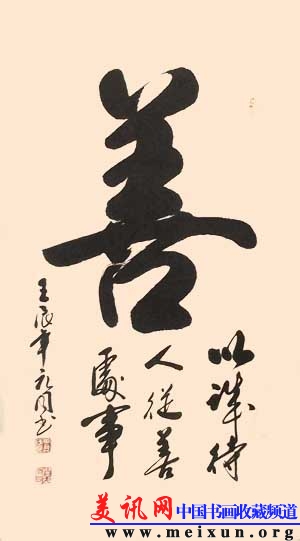 善
以诚待
人從善
處事
壬辰年
美讯网 中国书画收藏频道
www.meixun.org